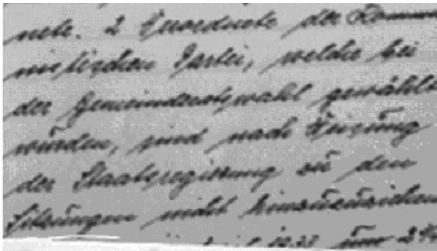 nete. 2 Verordnete der Kommu-
nistischen Partei, welche bei
der Gemeinderatswahl gewählt
wurden, sind nach Weisung
der Staatsregierung zu den
Sitzungen nicht hinzuzuziehen